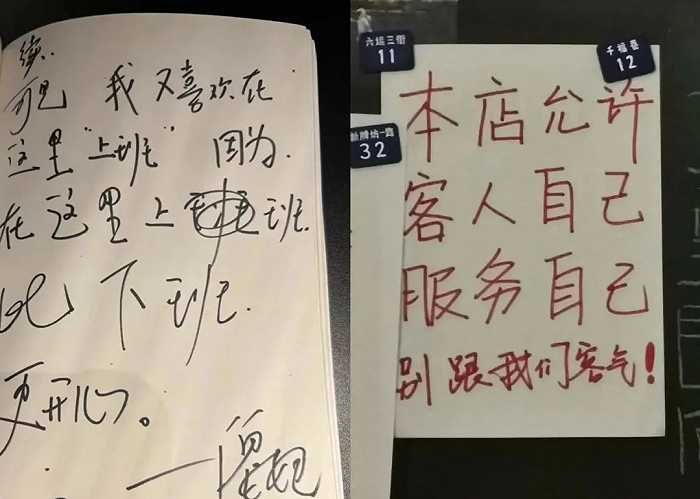 续.
可是 我又喜欢在
这里"上班" 因为.
在这里上班.
比下班.
更开心。
六运三街
11
千福巷
12
32
本店允许
客人自己
服务自己
别跟我们客气!